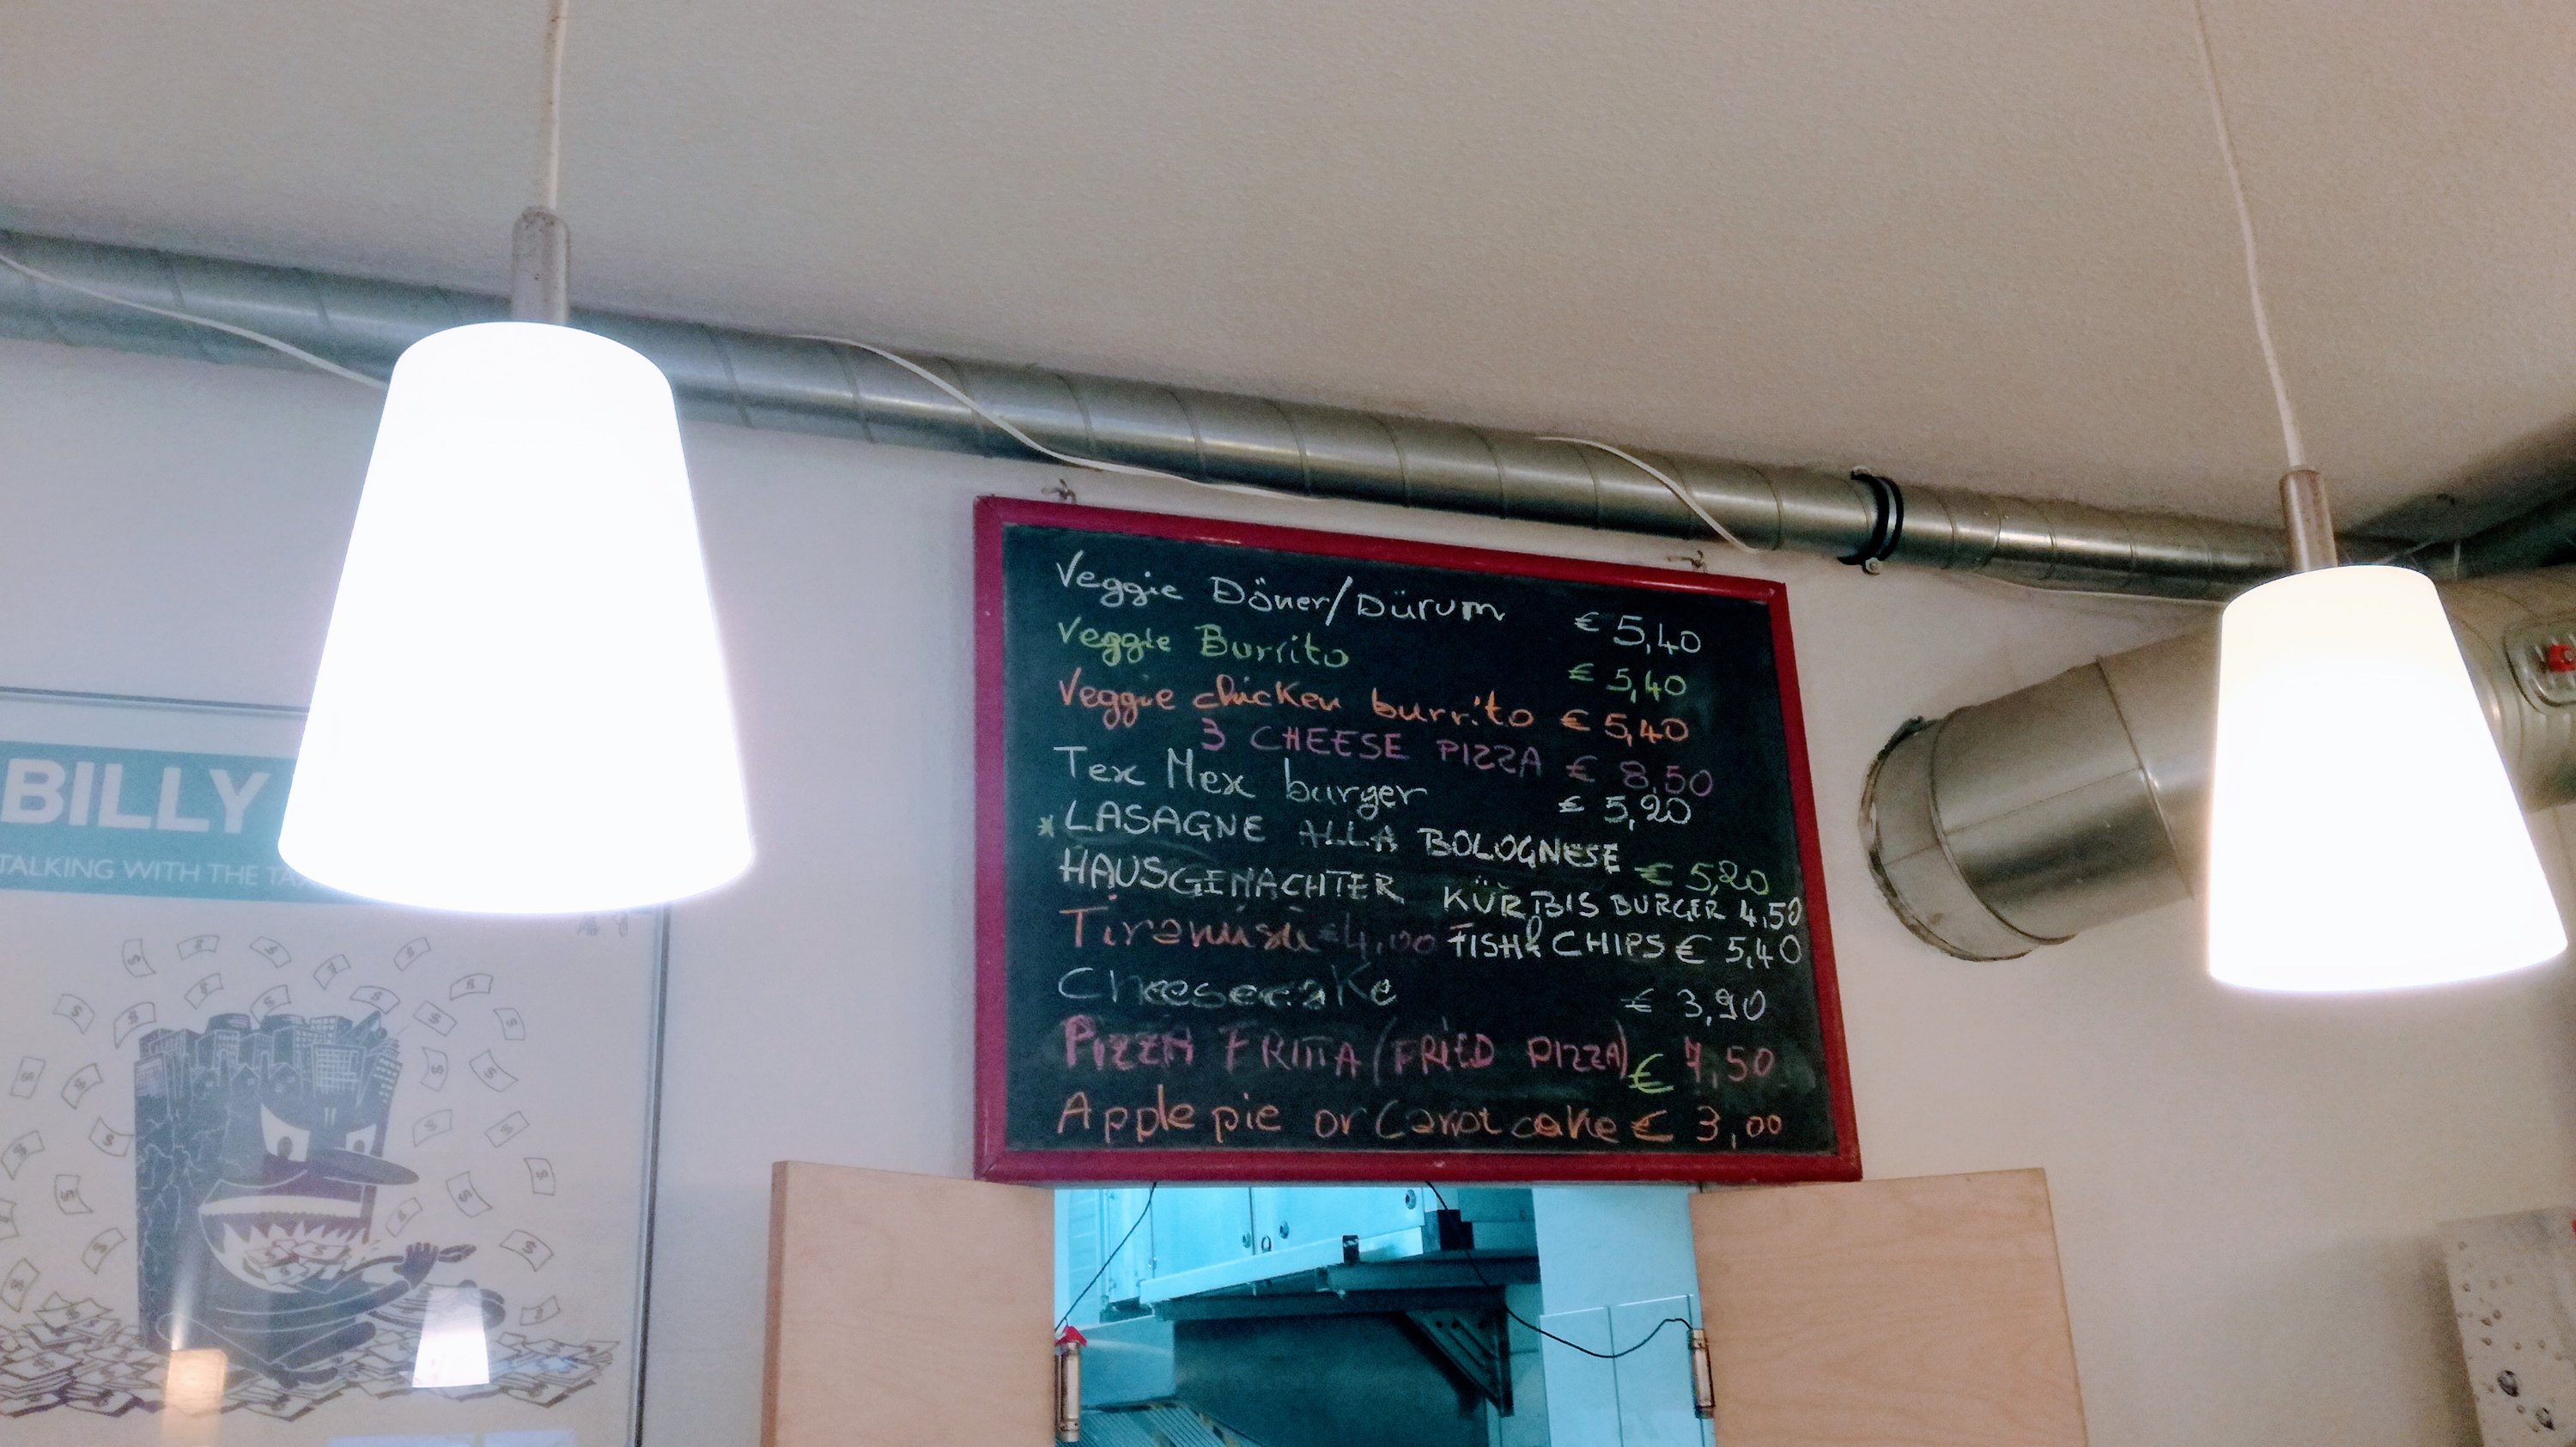 BILLY
TALKING WITH THE TA
Veggie Döner/Dürum € 5,40
Veggie Burrito € 5,40
Veggie chicken burrito € 5,40
3 CHEESE PIZZA € 8,50
Tex Mex burger € 5,20
* LASAGNE ALLA BOLOGNESE € 5,20
HAUSGEMACHTER KÜRBIS BURGER 4,50
Tiramisù € 4,00 FISH & CHIPS € 5,40
Cheesecake € 3,90
PIZZA FRITTA (FRIED PIZZA) € 7,50
Apple pie or Carot cake € 3,00